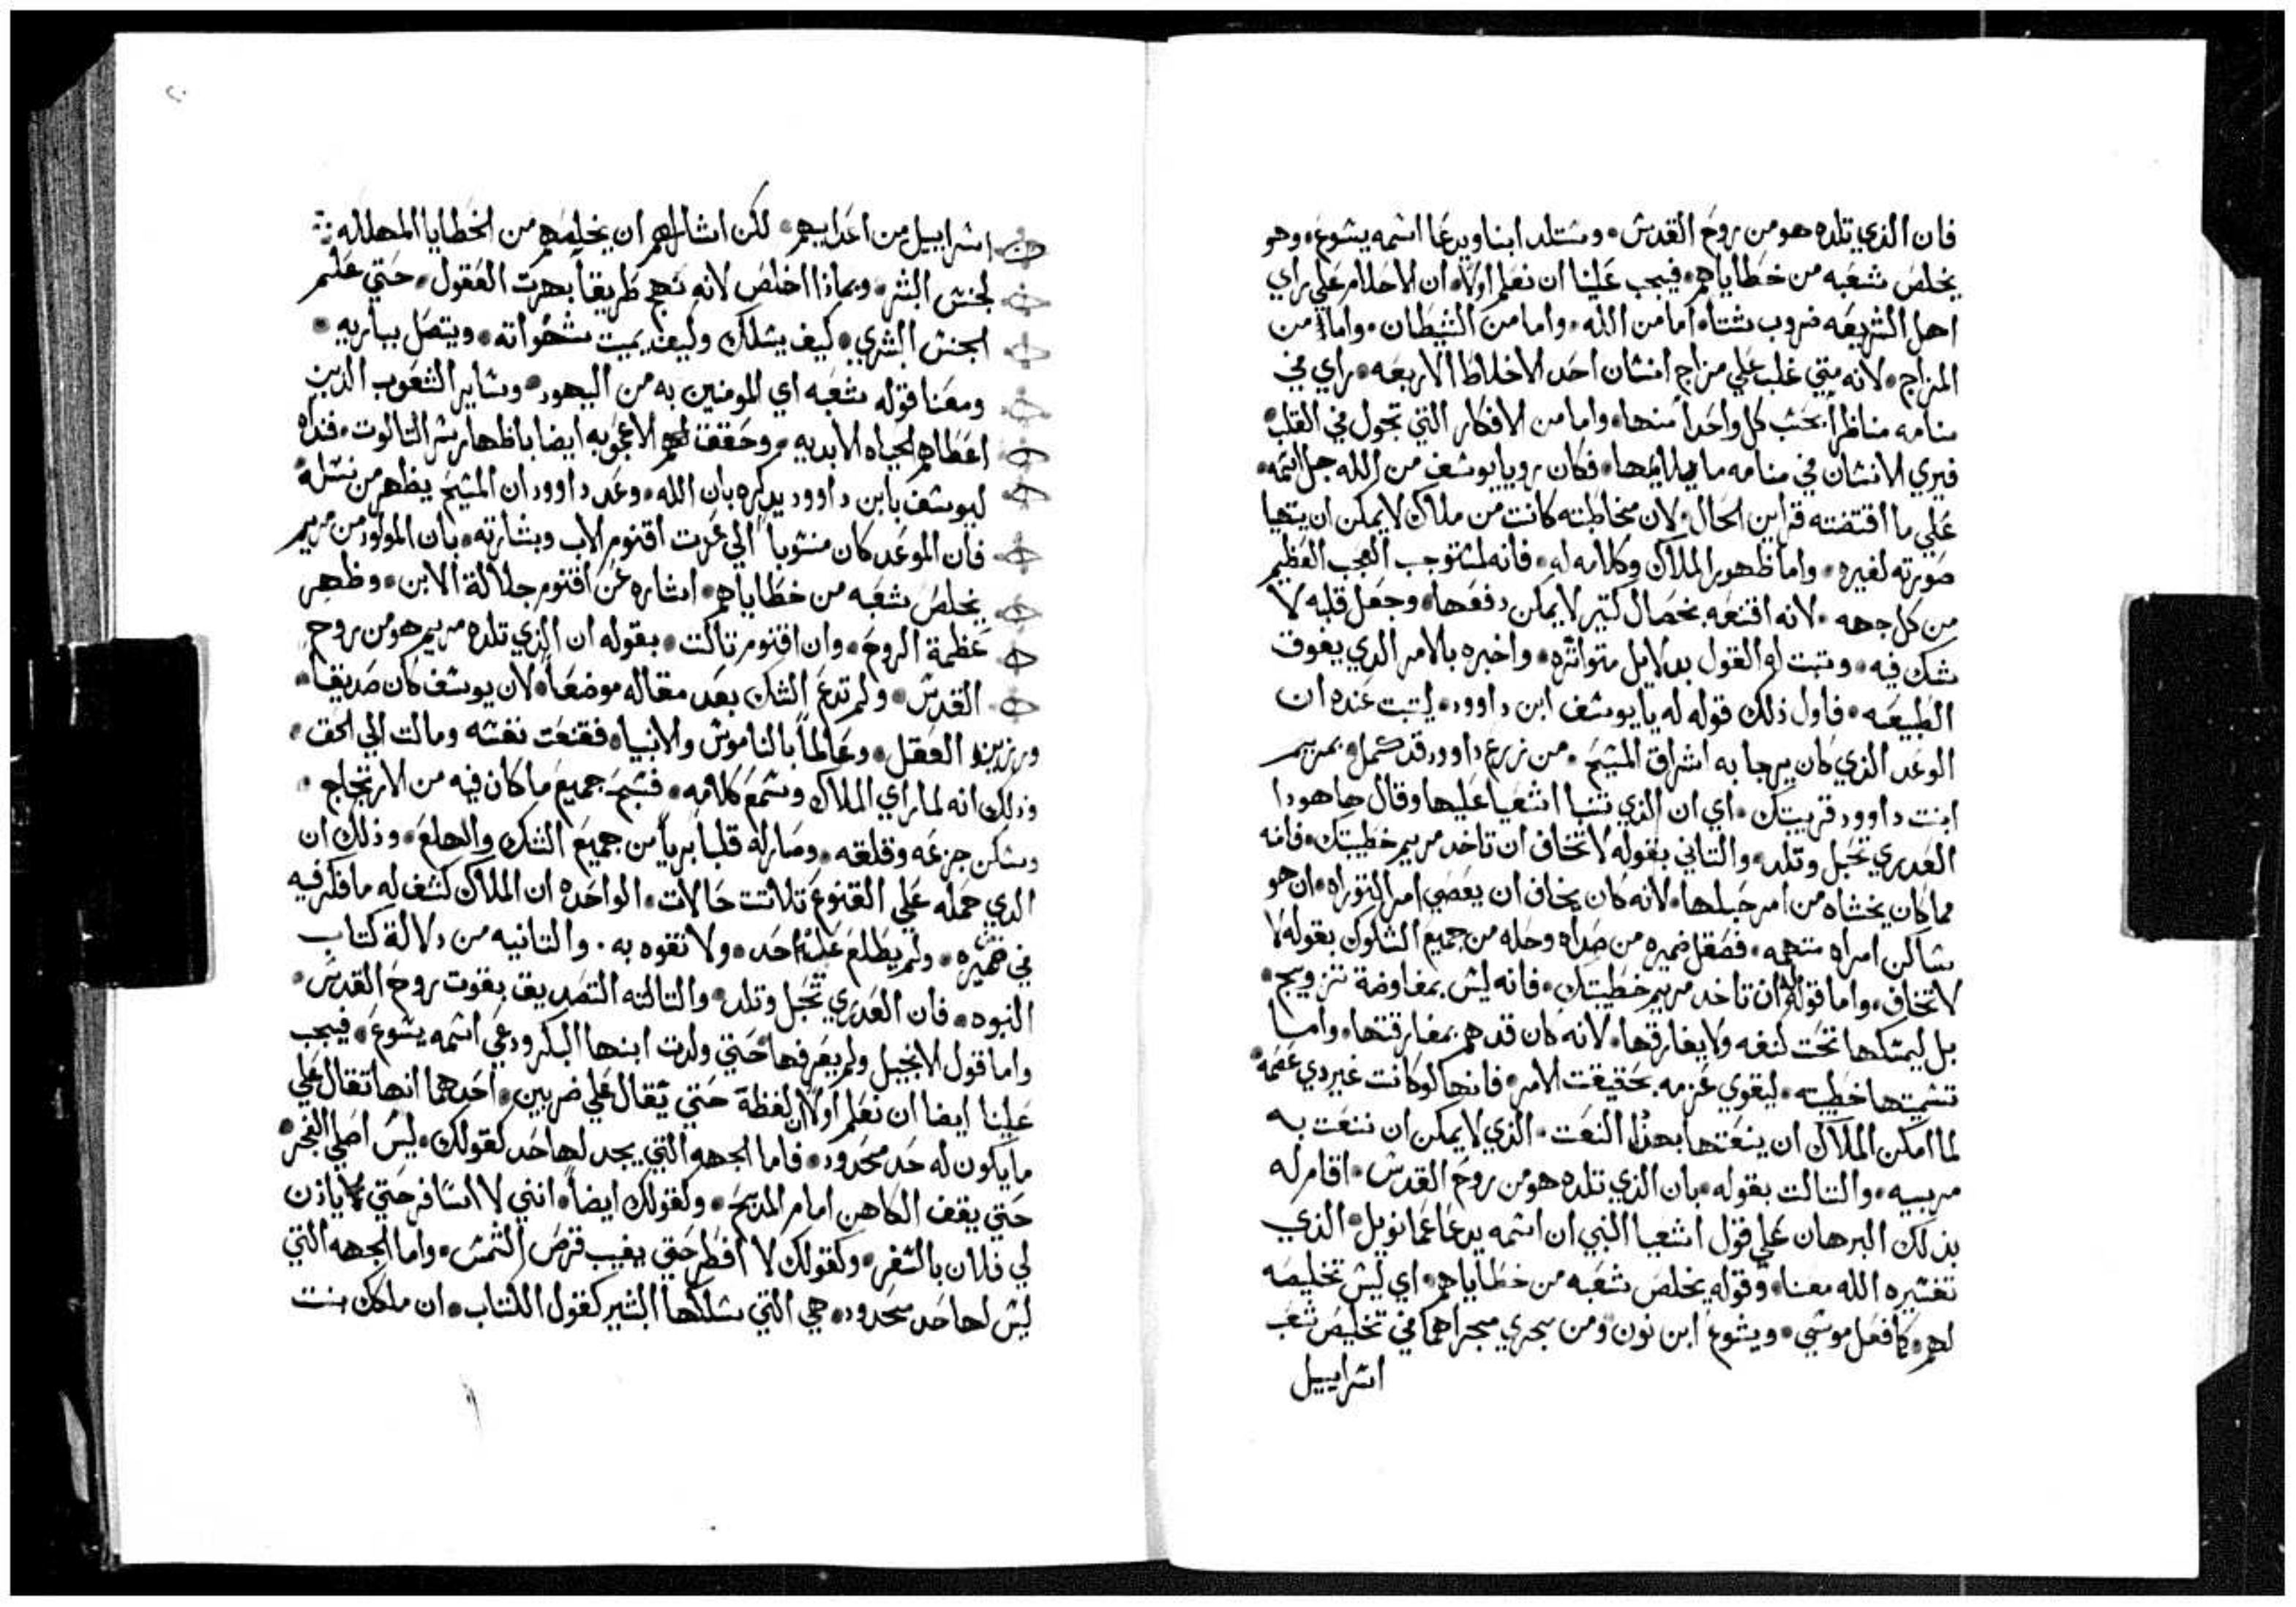 فان الذي تلده هو من روح القدس ۰ وستلد ابنا ويدعا اسمه يشوع ۰ وهو
يخلص شعبه من خطاياهم ۰ فيجب علينا ان نعلم اولا ۰ ان الاحلام علي راي
اهل الشريعه ضروب شتا ۰ اما من الله ۰ واما من الشيطان ۰ واما من
المزاج ۰ لانه متي غلب علي مزاج انسان احد الاخلاط الاربعه ۰ راي في
منامه مناظرا بحسب كل واحدا منها ۰ واما من الافكار التي تجول في القلب ۰
فيري الانسان في منامه ما يلايمها ۰ فكان رويا يوسف من الله جل اسمه ۰
علي ما اقتضته قراين الحال ۰ ولان مخاطبته كانت من ملاك لا يمكن ان يتهيا
صورته لغيره ۰ واما ظهور الملاك وكلامه له ۰ فانه لمستوجب العجب العظيم
من كل جهه ۰ لانه اقنعه بخصال كتير لا يمكن دفعها ۰ وجعل قلبه لا
شك فيه ۰ وتبت له القول بدلايل متواتره ۰ واخبره بالامر الدي يفوق
الطبيعه ۰ فاول ذلك قوله له يا يوسف ابن داوود ۰ ليتبت عنده ان
الوعد الذي كان يرجا به اشراق المسيح ۰ من زرع داوود قد كمل ۰ بمريم
ابنت داوود قريبتك ۰ اي ان الذي تنبا اشعيا عليها وقال ها هودا
العدري تحبل وتلد ۰ والتاني بقوله لا تخاف ان تاخد مريم خطيبتك ۰ فانه
مما كان يخشاه من امر حبلها ۰ لانه كان يخاف ان يعصي امر التوراه ۰ ان هو
ساكن امراه متهمه ۰ فصقل ضميره من صداه وحله من جميع الشكوك بقوله لا
لا تخاف ۰ واما قوله له ان تاخد مريم خطيبتك ۰ فانه ليس بمفاوضة تزويج ۰
بل ليمسكها تحت كنفه ولا يفارقها ۰ لانه كان قد هم بمفارقتها ۰ واما
تسميتها خطيبته ۰ ليقوي عزمه بحقيقت الامر ۰ فانها لو كانت غير دي عصمه ۰
لما امكن الملاك ان ينعتها بهذا النعت ۰ الذي لا يمكن ان تنعت به
مريبيه ۰ والتالت بقوله ۰ بان الذي تلده هو من روح القدس ۰ اقام له
بذلك البرهان علي قول اشعيا النبي ان اسمه يدعا عمانويل ۰ الذي
تفسيره الله معنا ۰ وقوله يخلص شعبه من خطاياهم ۰ اي ليس تخليصه
لهم ۰ كما فعل موسي ۰ ويشوع ابن نون ومن يجري مجراهما في تخليص شعب
اسراييل
اسراييل من اعدايهم ۰ لكن اشار لهم ان يخلصهم من الخطايا المهلكه
لجنس البشر ۰ وبماذا اخلص لانه نهج طريقا بهرت العقول ۰ حتي علم
الجنس البشري ۰ كيف يسلك وكيف يميت شهواته ۰ ويتصل بباريه ۰
ومعنا قوله شعبه اي المومنين به من اليهود ۰ وساير الشعوب الدين
اعطاهم الحياه الابديه ۰ وحقق لهم الاعجوبه ايضا باظهار سر التالوت ۰ فنداه
ليوسف بابن داوود يدكره بان الله ۰ وعد داوود ان المسيح يظهر من نسله ۰
فان الموعد كان منسوبا الي عزت اقنوم الاب وبشارته ۰ بان المولود من مريم
يخلص شعبه من خطاياهم ۰ اشاره عن اقنوم جلالة الابن ۰ وظهر
عظمة الروح ۰ وان اقنوم تالت ۰ بقوله ان الذي تلده مريم هو من روح
القدس ۰ ولم تدع الشك بعد مقاله موضعا ۰ لان يوسف كان صديقا ۰
ورزين العقل ۰ وعالما بالناموس والانبيا ۰ فقنعت نفسه ومالت الي الحق ۰
وذلك انه لما راي الملاك وسمع كلامه ۰ فسبح جميع ما كان فيه من الارتجاج ۰
وسكن جزعه وقلقه ۰ وصار له قلبا بريا من جميع الشك والهلع ۰ وذلك ان
الدي حمله علي القنوع تلاتت حالات ۰ الواحده ان الملاك كشف له ما فكر فيه
في ضميره ۰ ولم يطلع عليه احد ۰ ولا تفوه به ۰ والتانيه من دلالة كتاب
النبوه ۰ فان العدري تحبل وتلد ۰ والتالته التصديق بقوت روح القدس ۰
واما قول الانجيل ولم يعرفها حتي ولدت ابنها البكر ودعي اسمه يشوع ۰ فيجب
علينا ايضا ان نعلم اولا ان لفظة حتي تقال علي ضربين ۰ احدهما انها تقال علي
ما يكون له حد محدود ۰ فاما الجهه التي يجد لها حد كقولك ۰ ليس اصلي الفجر ۰
حتي يقف الكاهن امام المدبح ۰ وكقولك ايضا ۰ انني لا اسافر حتي ياذن
لي فلان بالسفر ۰ وكقولك لا افطر حتي يغيب قرص الشمس ۰ واما الجهه التي
ليس لها حد محدود ۰ هي التي سلكها البشير كقول الكتاب ۰ ان ملكك بنت